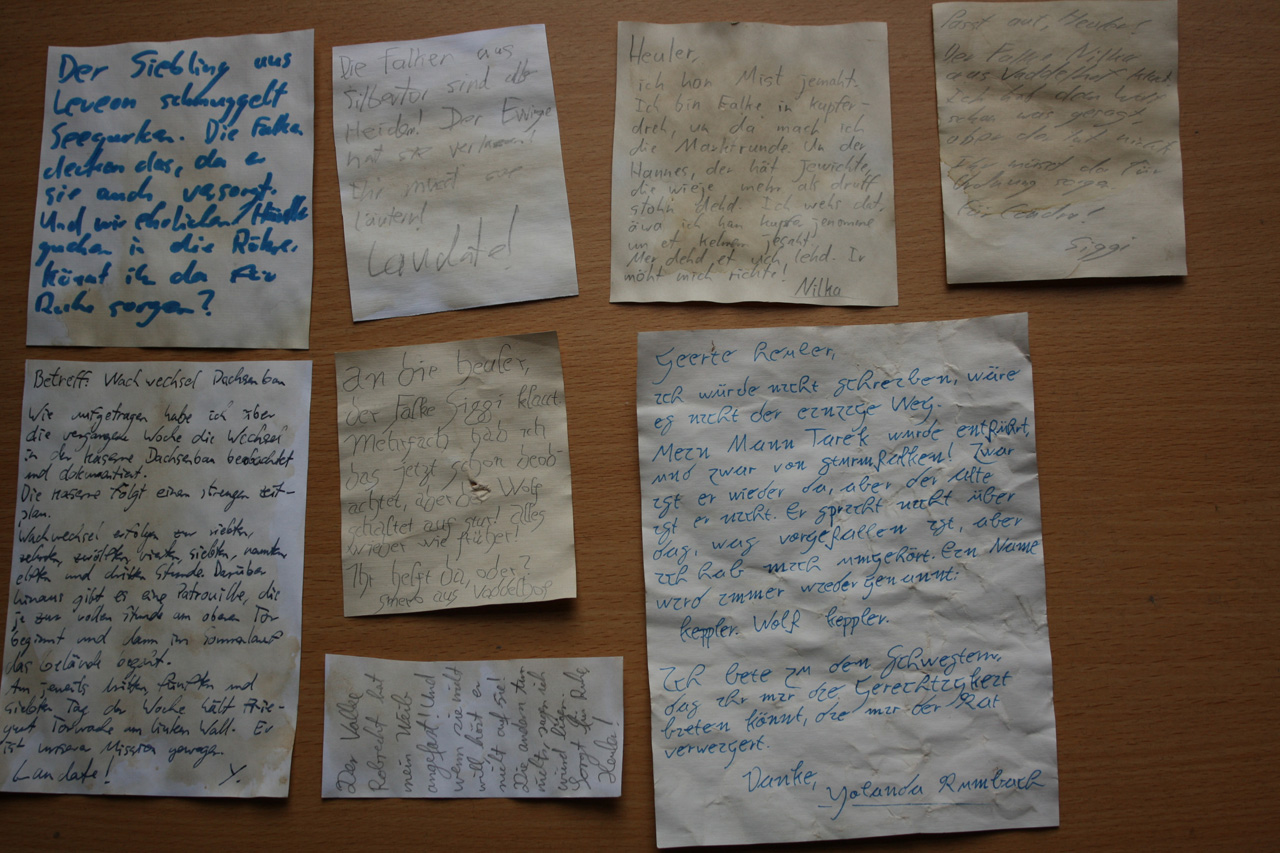 Der Siebling aus
Leveon schmuggelt
Seegurken. Die Falken
decken das, da er
sie auch versorgt.
Und wir ehrlichen Händler
gucken in die Röhre.
Könnt ih da für
Ruhe sorgen?
Die Falken aus
Silbertor sind alle
Heiden! Der Ewige
hat sie verlassen!
Ihr müsst sie
läutern!
Laudate!
Heuler,
ich han Mist jemaht.
Ich bin Falke in Kupfer-
dreh, un da mach ich
die Marktrunde. Un der
Hannes, der hät Jewichte,
die wieje mehr als droff
stohn dehd. Ich wehs dat,
äwa ich han Kupfer jenomme
un et keinem jesaht.
Mer dehd et uch lehd. Ir
möht mich richte!
Nilka
Passt auf, Heuler!
Der Falke Nilka
aus Vaddelhof klaut
Ich hab dem Wolf
schon was gesagt,
aber da tut nisch
Ihr müsst da für
Ordnung sorgen
Für Leuder!
Siggi
Betreff: Wachwechsel Dachsenbau
Wie aufgetragen habe ich über
die vergangene Woche die Wechsel
in der Kaserne Dachsenbau beobachtet
und dokumentiert.
Die Kaserne folgt einem strengen Zeit-
plan.
Wachwechsel erfolgen zur siebten,
zehnten, zwölften, vierten, siebten, neunten
elften und dritten Stunde. Darüber
hinaus gibt es eine Patrouille, die
je zur vollen Stunde am oberen Tor
beginnt und dann im Sonnenlauf
das Gelände begeht.
Am jeweils dritten, fünften und
siebten Tag der Woche hält Frie-
gunt Torwache am linken Wall. Er
ist unserer Mission gewogen.
Laudate! Y.
An die Heuler,
der Falke Siggi klaut.
Mehrfach hab ich
das jetzt schon beob-
achtet, aber der Wolf
schaltet auf stur! Alles
wieder wie früher!
Ihr helft da, oder?
aus Vaddelhof
Der Falke
Robrecht hat
mein Weib
angefasst! Und
wenn sie nicht
will hört er
nicht auf sie!
Die andern tun
nichts, sagen ich
würd lügen.
Sorgt für Ruhe,
Heuler!
Geerte Heuler,
ich würde nicht schreiben, wäre
es nicht der einzige Weg.
Mein Mann Tarek wurde entführt,
und zwar von Sturmfalken! Zwar
ist er wieder da, aber der Alte
ist er nicht. Er spricht nicht über
das, was vorgefallen ist, aber
ich hab mich umgehört. Ein Name
wird immer wieder genannt:
Keppler. Wolf Keppler.
Ich bete zu den Schwestern,
das ihr mir die Gerechtigkeit
bieten könnt, die mir der Rat
verweigert.
Danke,
Yolanda Rumbach